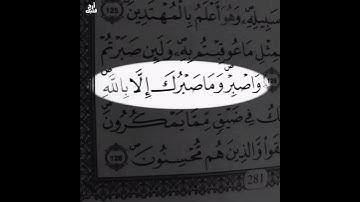 أرح قلبك
سَبِيلِهِۦ وَهُوَ أَعْلَمُ بِالْمُهْتَدِينَ 125
مِثْلِ مَا عُوقِبْتُم بِهِۦ وَلَئِن صَبَرْتُمْ
126 وَاصْبِرْ وَمَا صَبْرُكَ إِلَّا بِاللَّهِ
كُ فِى ضَيْقٍ مِّمَّا يَمْكُرُونَ
قَوا وَّالَّذِينَ هُم مُّحْسِنُونَ 128
281